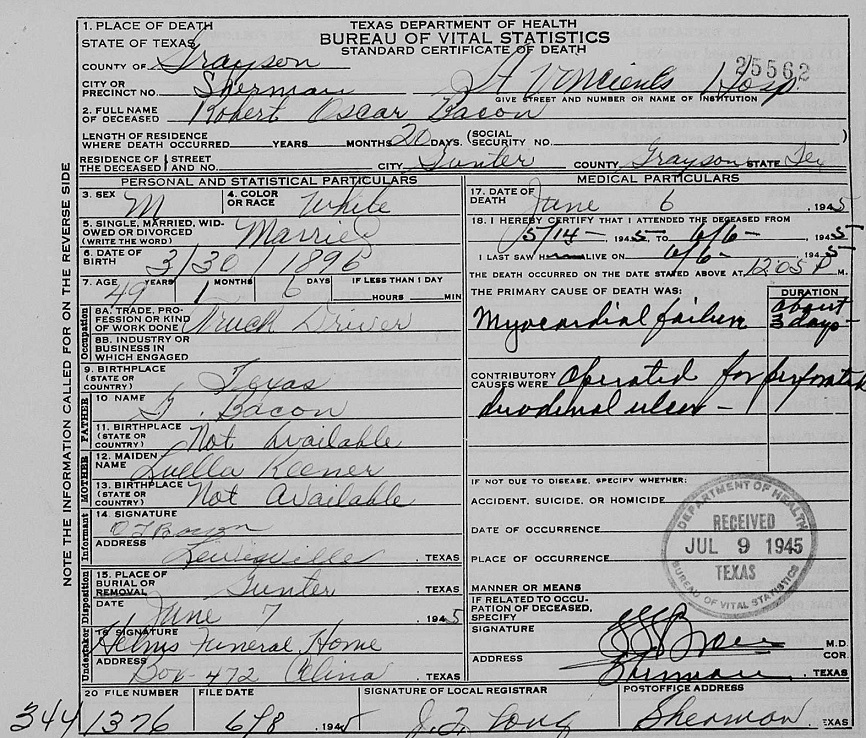 1. PLACE OF DEATH
STATE OF TEXAS
TEXAS DEPARTMENT OF HEALTH
BUREAU OF VITAL STATISTICS
STANDARD CERTIFICATE OF DEATH
25562
COUNTY OF Grayson
CITY OR PRECINCT NO. Sherman St Vincients Hosp
GIVE STREET AND NUMBER OR NAME OF INSTITUTION
2. FULL NAME OF DECEASED Robert Oscar Bacon
LENGTH OF RESIDENCE WHERE DEATH OCCURRED YEARS MONTHS 20 DAYS. (SOCIAL SECURITY NO. )
RESIDENCE OF THE DECEASED STREET AND NO. CITY Gunter COUNTY Grayson STATE Tex
NOTE THE INFORMATION CALLED FOR ON THE REVERSE SIDE
PERSONAL AND STATISTICAL PARTICULARS
3. SEX M
4. COLOR OR RACE White
5. SINGLE, MARRIED, WIDOWED OR DIVORCED (WRITE THE WORD) Married
6. DATE OF BIRTH 3/30/1896
7. AGE 49 YEARS 1 MONTHS 6 DAYS IF LESS THAN 1 DAY HOURS MIN
Occupation
8A. TRADE, PROFESSION OR KIND OF WORK DONE Truck Driver
8B. INDUSTRY OR BUSINESS IN WHICH ENGAGED
9. BIRTHPLACE (STATE OR COUNTRY) Texas
FATHER
10 NAME Bacon
11. BIRTHPLACE (STATE OR COUNTRY) Not Available
MOTHER
12. MAIDEN NAME Luella Keener
13. BIRTHPLACE (STATE OR COUNTRY) Not Available
Informant
14. SIGNATURE
ADDRESS Lewisville, TEXAS
Disposition
15. PLACE OF BURIAL OR REMOVAL Gunter, TEXAS
DATE June 7, 1945
Undertaker
16 SIGNATURE Helms Funeral Home
ADDRESS Box-472 Celina, TEXAS
MEDICAL PARTICULARS
17. DATE OF DEATH June 6, 1945
18. I HEREBY CERTIFY THAT I ATTENDED THE DECEASED FROM
5/14- 1945, TO 6/6-, 1945
I LAST SAW H ALIVE ON 6/6- 1945
THE DEATH OCCURRED ON THE DATE STATED ABOVE AT 1205 P M.
THE PRIMARY CAUSE OF DEATH WAS: DURATION
Myocardial failure about 3 days-
CONTRIBUTORY CAUSES WERE Operated for perforated
duodenal ulcer-
IF NOT DUE TO DISEASE, SPECIFY WHETHER:
ACCIDENT, SUICIDE, OR HOMICIDE
DATE OF OCCURRENCE
PLACE OF OCCURRENCE
MANNER OR MEANS
IF RELATED TO OCCUPATION OF DECEASED, SPECIFY
DEPARTMENT OF HEALTH
RECEIVED
JUL 9 1945
TEXAS
BUREAU OF VITAL STATISTICS
SIGNATURE M.D. COR.
ADDRESS Sherman, TEXAS
20 FILE NUMBER FILE DATE SIGNATURE OF LOCAL REGISTRAR POSTOFFICE ADDRESS
344 1376 6/8 1945 J. Long Sherman TEXAS